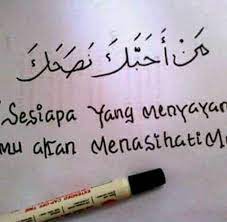 مَنْ أَحَبَّكَ نَصَحَكَ
Sesiapa Yang menyayan
mu akan Menasihatimu